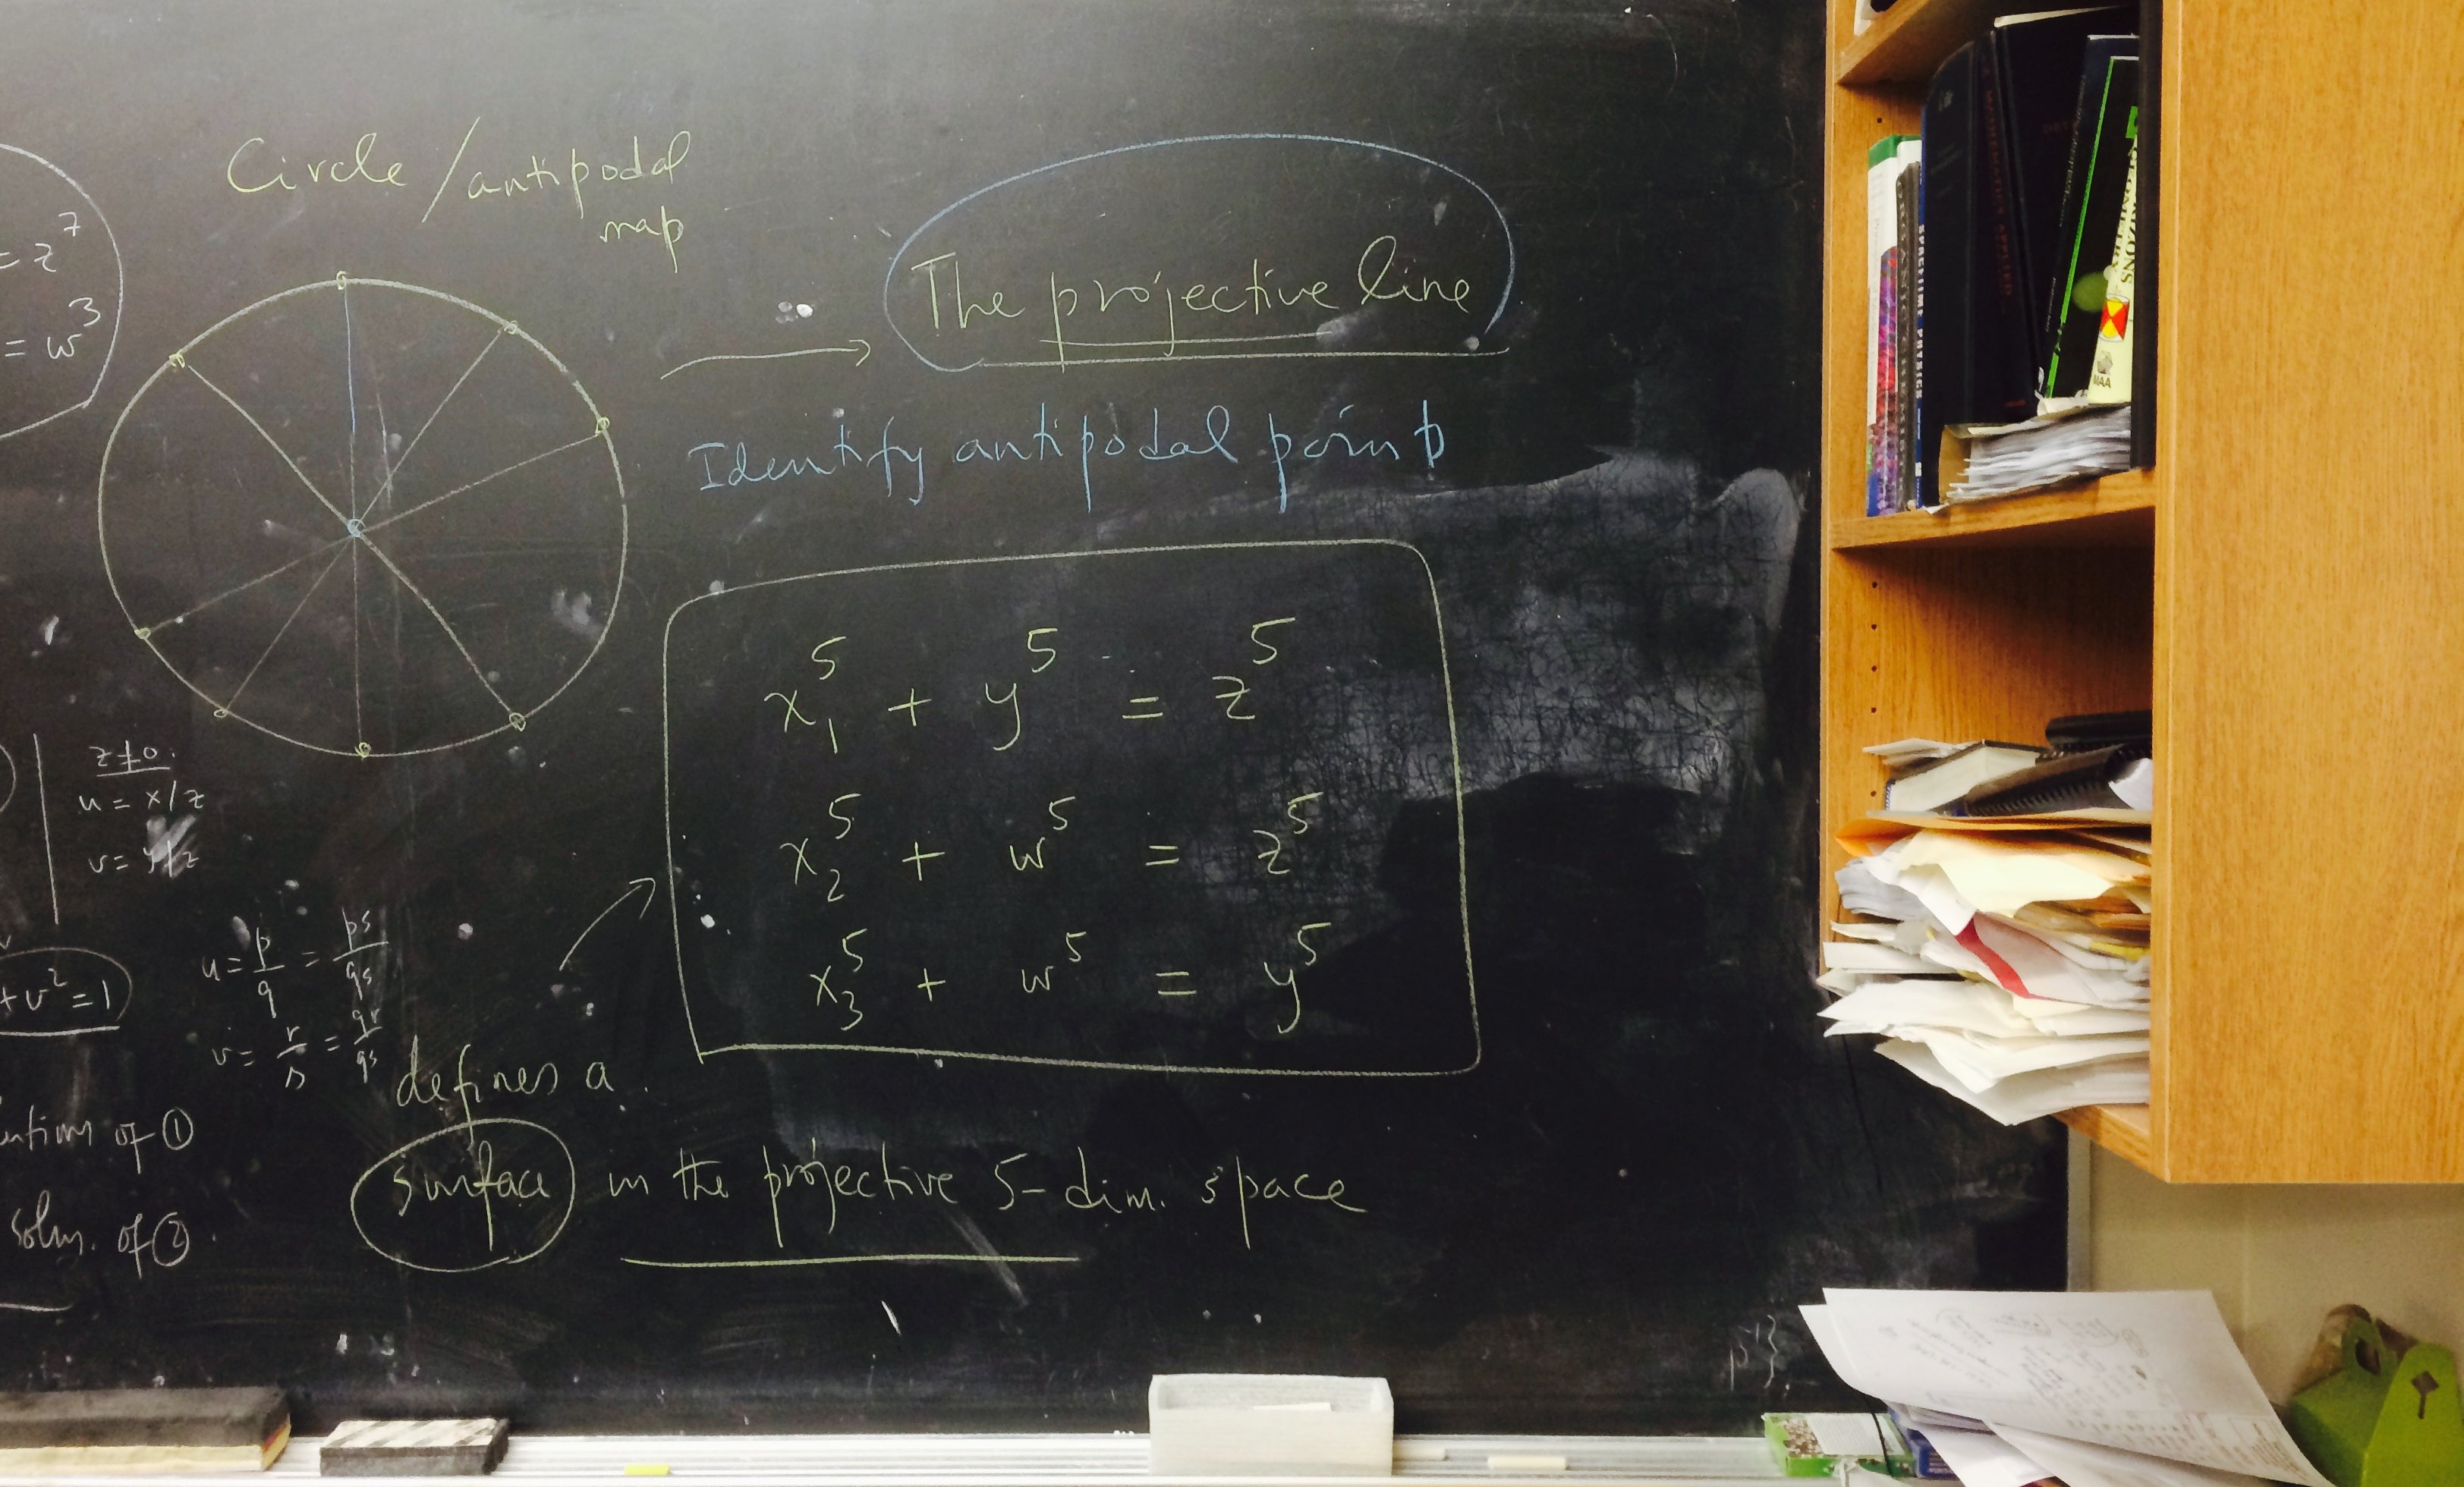 = z^7
= w^3
Circle / antipodal
map
The projective line
Identify antipodal points
x_1^5 + y^5 = z^5
x_2^5 + w^5 = z^5
x_3^5 + w^5 = y^5
z ≠ 0.
u = x/z
v = y/z
+ v^2 = 1
u = p/q = ps/qs
v = r/s = qr/qs
of ①
soln. of ②.
defines a
surface in the projective 5-dim. space
MAA